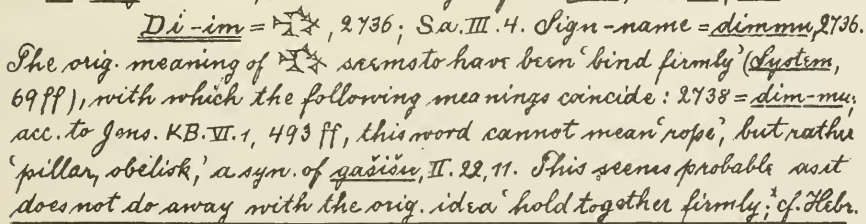 Di-im = 𒁴, 2736; Sa. III. 4. Sign-name = dimmu, 2736.
The orig. meaning of 𒁴 seems to have been 'bind firmly' (System,
69 ff), with which the following meanings coincide: 2738 = dim-mu;
acc. to Jens. KB. VI. 1, 493 ff, this word cannot mean 'rope', but rather
'pillar, obelisk,' a syn. of gašišu, II. 22, 11. This seems probable as it
does not do away with the orig. idea 'hold together firmly;' cf. Hebr.